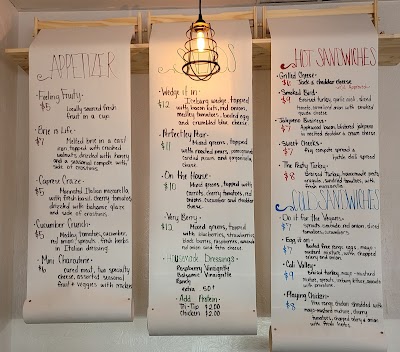 APPETIZER
-Feeling Fruity-
$5 Locally sourced fresh
fruit in a cup
-Brie in a Life-
$7 Melted brie in a cast
iron topped with crushed
walnuts, drizzled with honey
and a seasonal compote with a
side of crostinis.
-Caprese Craze-
$5 Marinated Italian mozzarella
with fresh basil, cherry tomatoes,
drizzled with balsamic glaze
and side of crostinis.
-Cucumber Crunch-
$5 Medley tomatoes, cucumber,
red onion, sprouts, fresh herbs
in Italian dressing
-Mini Charcuterie-
$6 cured meat, two specialty
cheese, assorted seasonal
fruit + veggies with
-Wedge it in-
$12 Iceberg wedge, topped
with bacon bits, red onions,
medley tomatoes, boiled egg
and crumbled blue cheese.
-Perfectley Pear-
$11 Mixed greens, topped
with roasted pears, cranberries,
candied pecans and gorgonzola
cheese.
-On the House-
$10 Mixed greens, topped with
carrots, cherry tomatoes, red
onions, cucumber and cheddar
cheese
-Very Berry-
$12 Mixed greens, topped
with blueberries, strawberries,
black berries, raspberries, almonds,
red onion and feta cheese
Housemade Dressings-
Raspberry Vinigrette
Balsamic Vinigrette
Ranch
extra 50¢
-Add Protein-
Tri-Tip $2.00
Chicken $2.00
HOT SANDWICHES
-Grilled Cheese-
$6 Swiss & cheddar cheese
-Smoked Bird-
$9 Smoked turkey, garlic aioli, sliced
tomato, caramelized onion with smoked
cheddar cheese.
-Jalapeno Business-
$7 Applewood bacon, blistered jalapeno
in melted cheddar & cream cheese
-Sweet Cheeks-
$7 Fig compote spread &
-The Pesto Turkey-
$8 Smoked Turkey, homemade pesto,
arugula, sundried tomatoes, with
fresh mozzarella.
COLD SANDWICHES
-Do it for the Vegans-
$7 sprouts, avocado, red onion, sliced
tomatoes, cucumbers.
-Egg it on-
$7 Boiled free range eggs, mayo-
mustard mixture, with chopped
celery and onion
-Cali Valley-
$9 Smoked turkey, mayo-mustard
mixture, sprouts,
avocado with provolone
-Playing Chicken-
$8 Free range chicken shredded with
mayo-mustard mixture, cherry
tomatoes, chopped celery & onion
with fresh herbs.